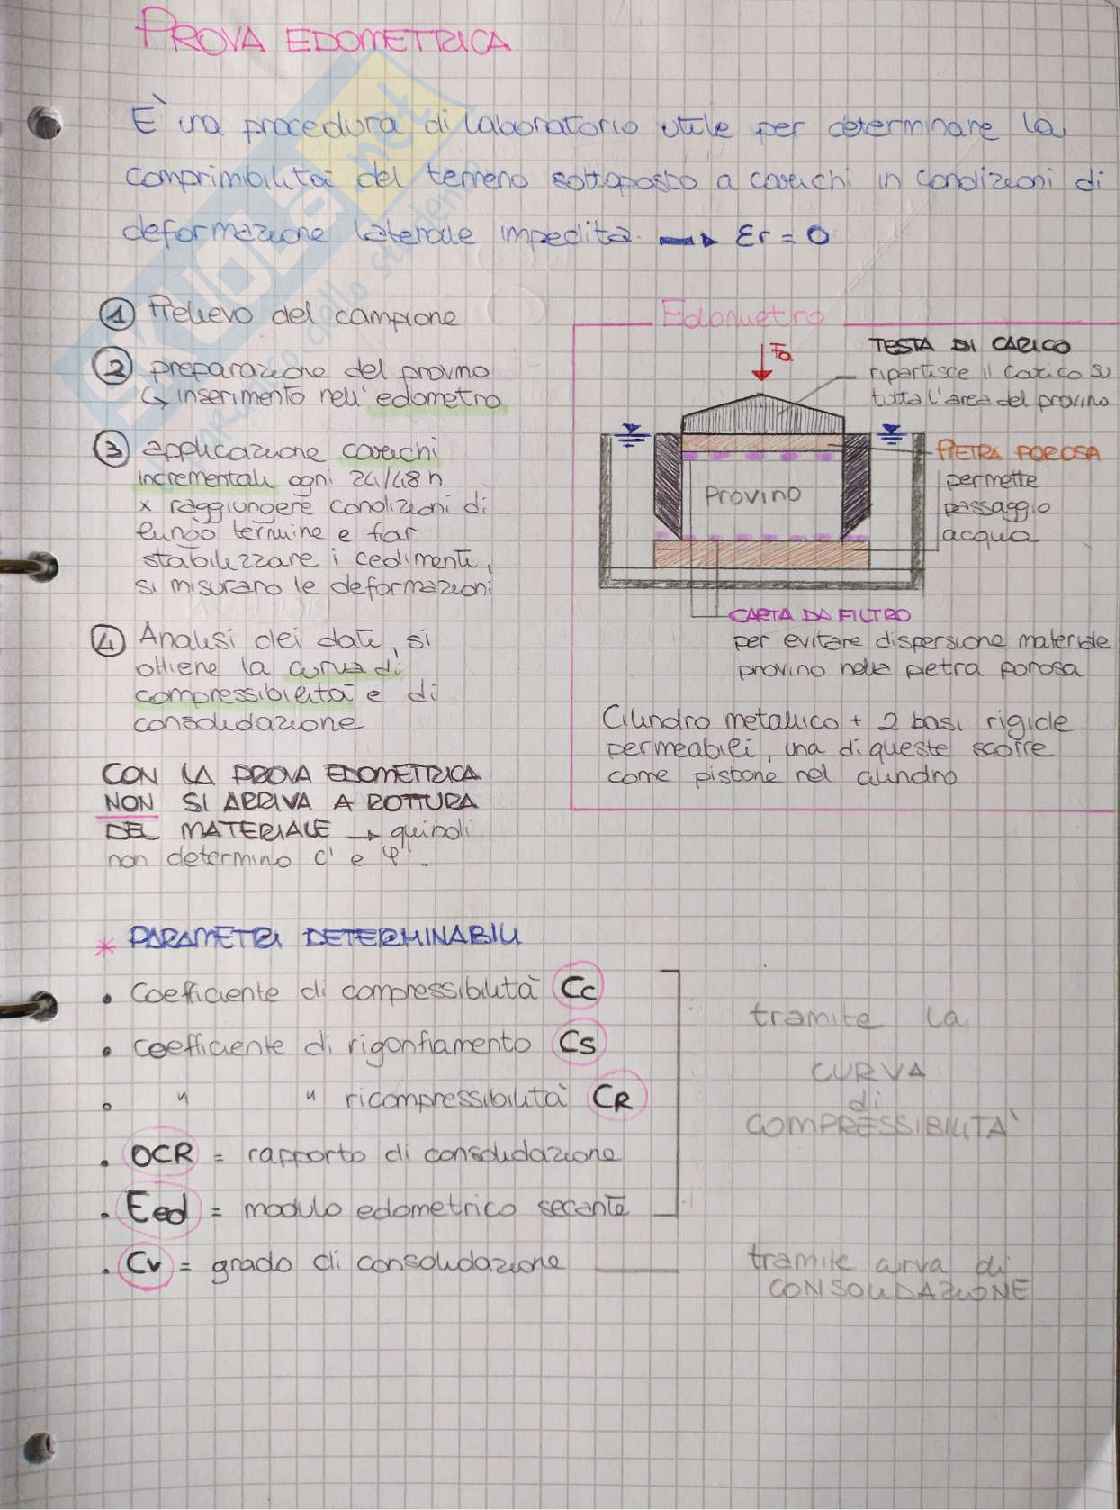 PROVA EDOMETRICA
È una procedura di laboratorio utile per determinare la
comprimibilità del terreno sottoposto a carichi in condizioni di
deformazione laterale impedita. → εr = 0
1 Prelievo del campione
2 preparazione del provino
↳ inserimento nell'edometro
3 applicazione carichi
incrementali ogni 24/48 h
x raggiungere condizioni di
lungo termine e far
stabilizzare i cedimenti,
si misurano le deformazioni
4 Analisi dei dati, si
ottiene la curva di
compressibilità e di
consolidazione
CON LA PROVA EDOMETRICA
NON SI ARRIVA A ROTTURA
DEL MATERIALE → quindi
non determino c' e φ'
Edometro
Fa
TESTA DI CARICO
ripartisce il carico su
tutta l'area del provino
PIETRA POROSA
permette
passaggio
acqua
Provino
CARTA DA FILTRO
per evitare dispersione materiale
provino nella pietra porosa
Cilindro metallico + 2 basi rigide
permeabili, una di queste scorre
come pistone nel cilindro
* PARAMETRI DETERMINABILI
• Coefficiente di compressibilità Cc
• Coefficiente di rigonfiamento Cs
• " " ricompressibilità CR
• OCR = rapporto di consolidazione
• Eed = modulo edometrico secante
tramite la
CURVA
di
COMPRESSIBILITA'
• Cv = grado di consolidazione
tramite curva di
CONSOLIDAZIONE
SKUOLA.net